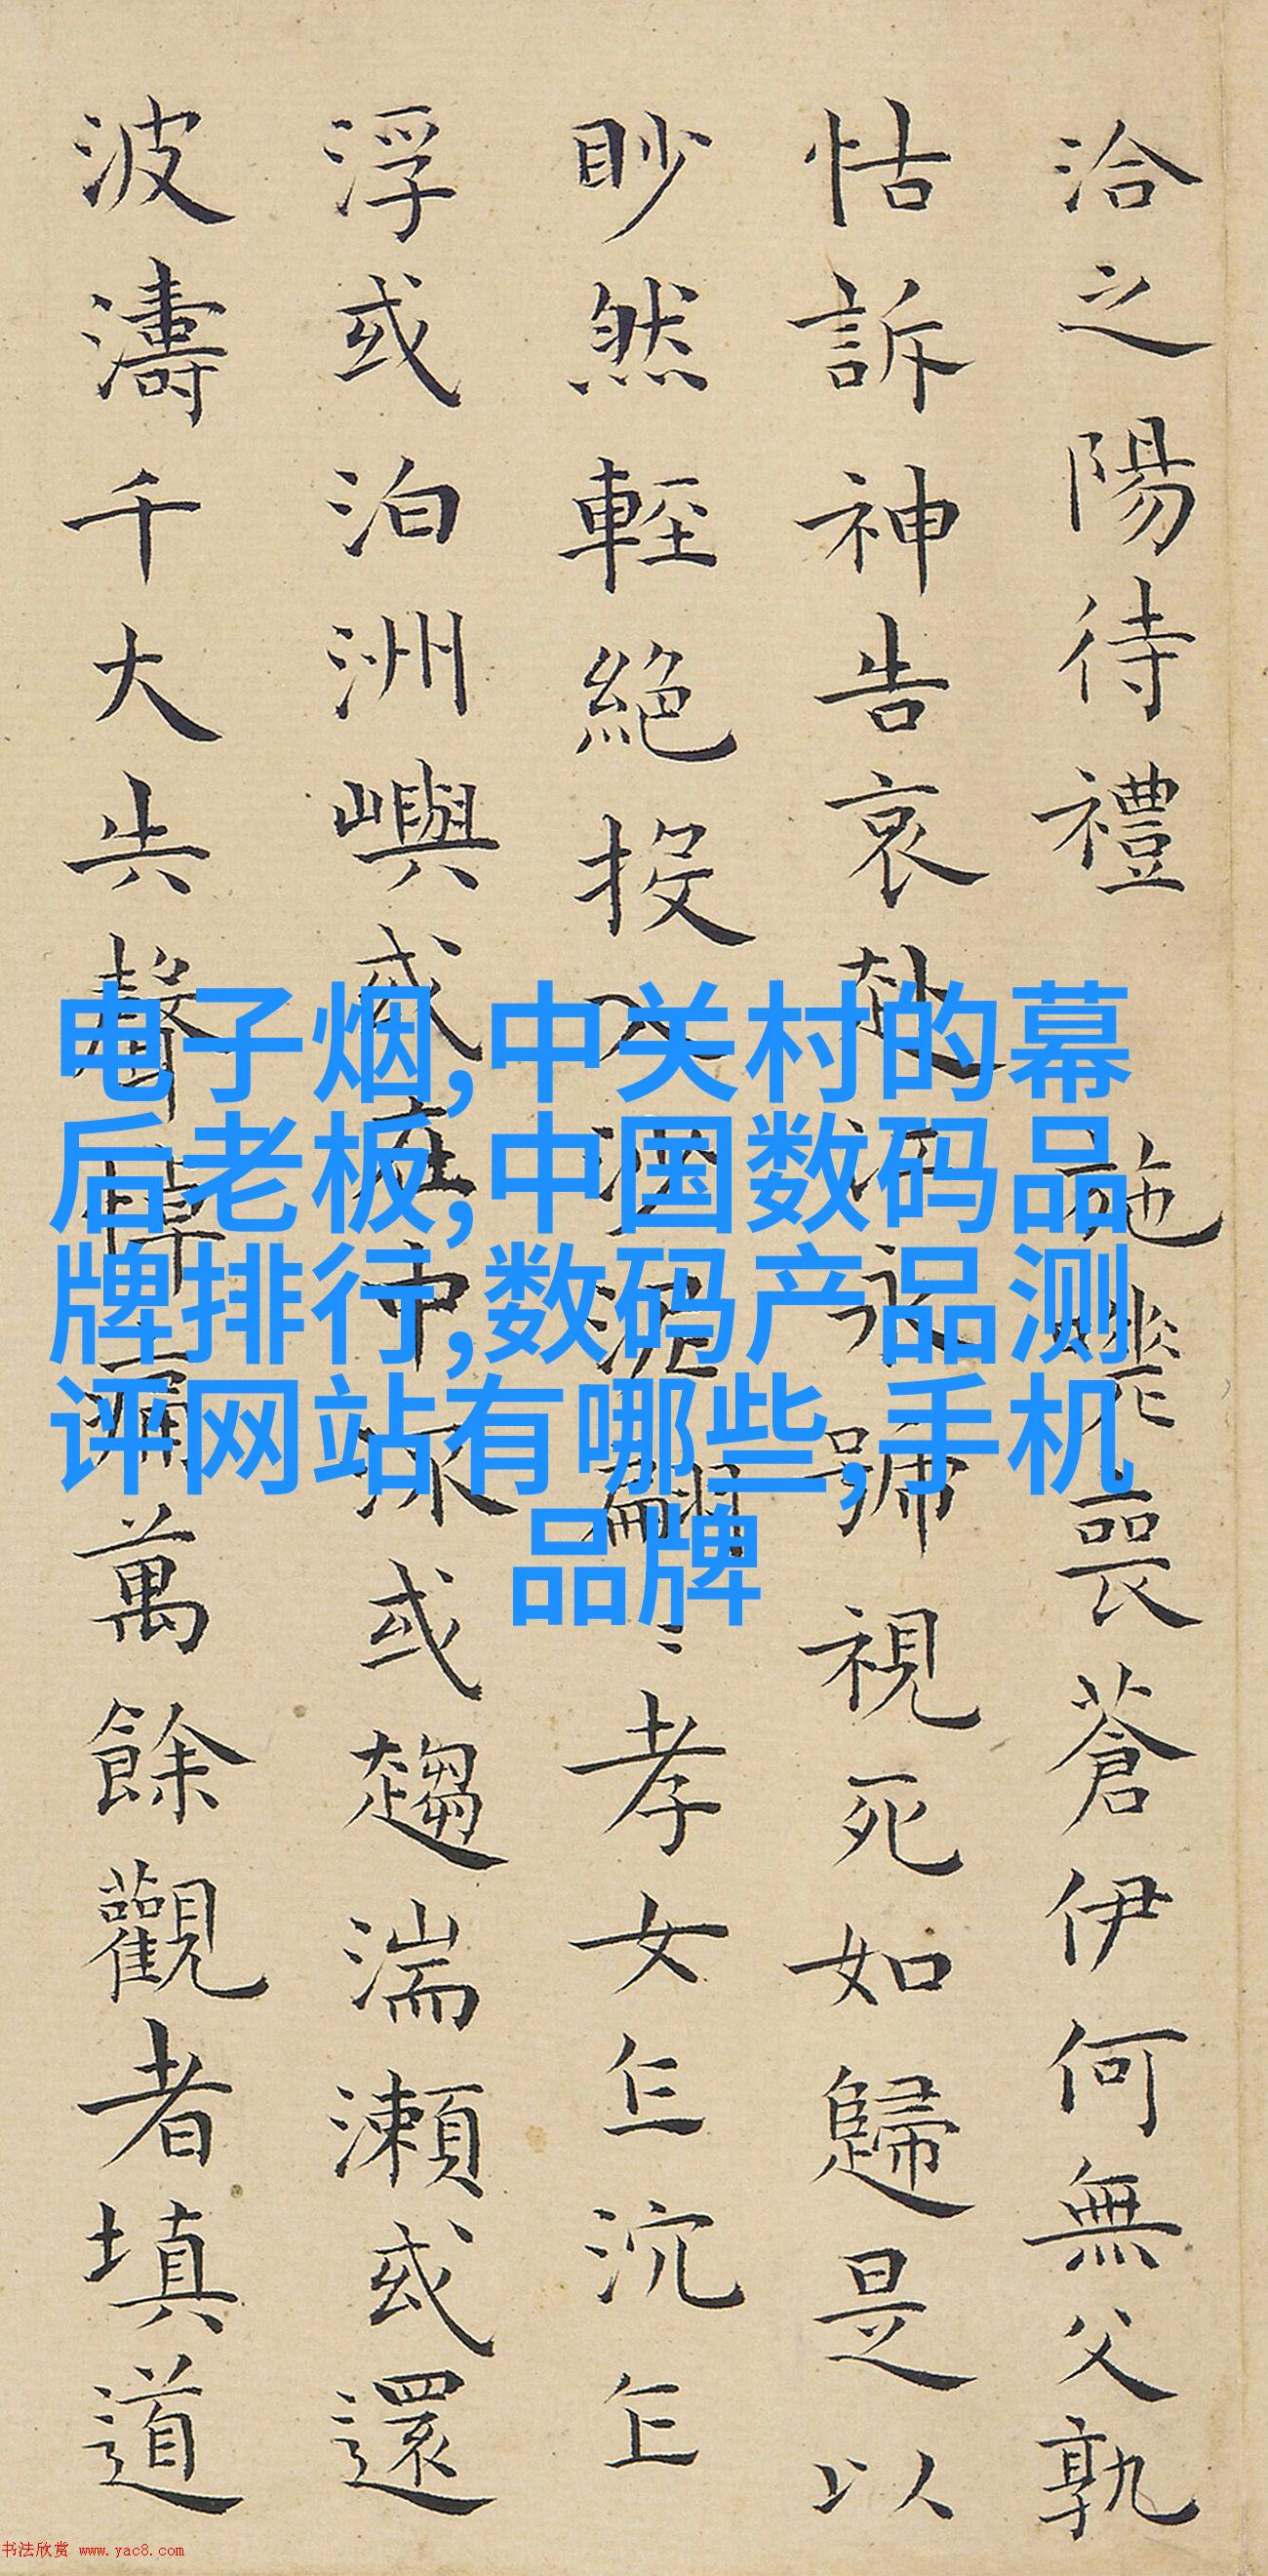 洽之陽待禮 施嫯喪蒼伊何無父孰
怙訴神告哀赴江永號視死如歸是以
眇然輕絕投入沙泥翩〻孝女乍沉乍
浮或泊洲嶼或在中流或趨湍瀨或還
波濤千失聲悼痛萬餘觀者填道
电子烟,中关村的幕
后老板,中国数码品
牌排行,数码产品测
评网站有哪些,手机
品牌
书法欣赏 www.yac8.com